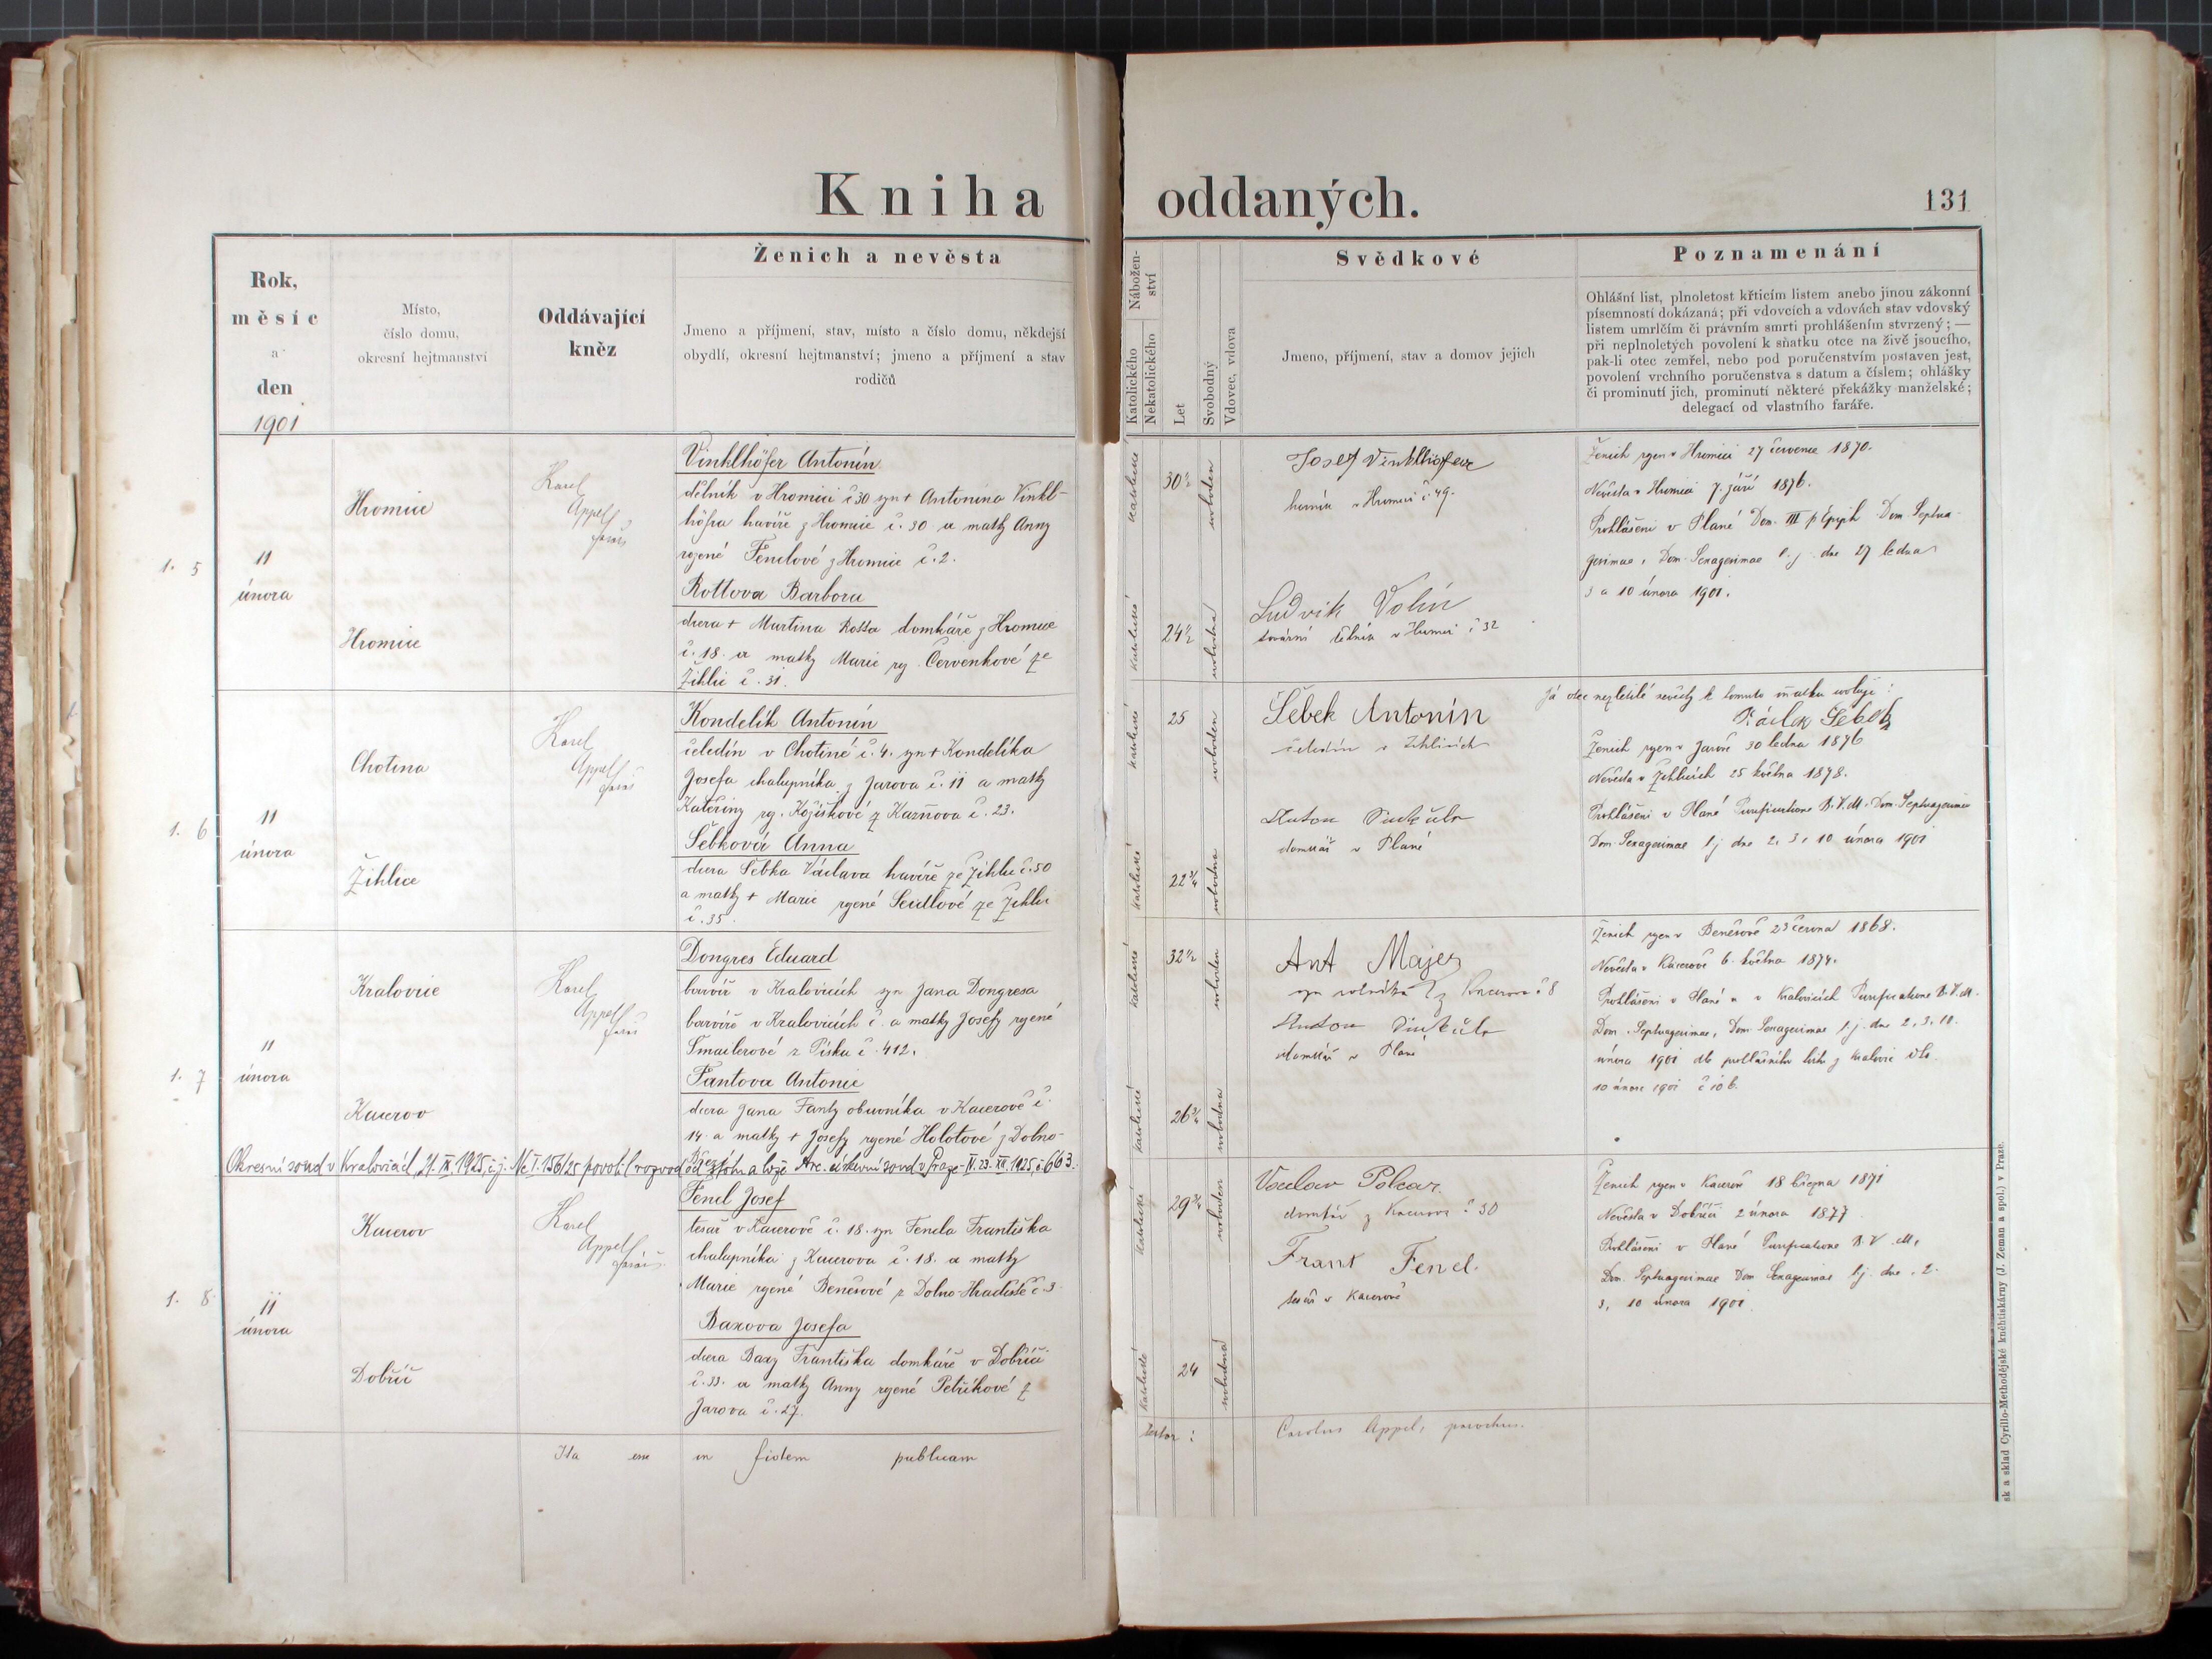 Kniha oddaných.
131
Rok,
měsíc
a
den
1901
Místo,
číslo domu,
okresní hejtmanství
Oddávající
kněz
Ženich a nevěsta
Jmeno a příjmení, stav, místo a číslo domu, někdejší
obydlí, okresní hejtmanství; jmeno a příjmení a stav
rodičů
Nábožen-
ství
Katolického
Nekatolického
Let
Svobodný
Vdovec, vdova
Svědkové
Jmeno, příjmení, stav a domov jejich
Poznamenání
Ohlášní list, plnoletost křticím listem anebo jinou zákonní
písemností dokázaná; při vdovcích a vdovách stav vdovský
listem umrlčím či právním smrti prohlášením stvrzený; —
při neplnoletých povolení k sňatku otce na živě jsoucího,
pak-li otec zemřel, nebo pod poručenstvím postaven jest,
povolení vrchního poručenstva s datum a číslem; ohlášky
či prominutí jich, prominutí některé překážky manželské;
delegací od vlastního faráře.
1. 5
11
února
Hromice
Hromice
Karel
Appel
farář
Vinklhöfer Antonín
dělník v Hromici č 30 syn + Antonína Vinkl-
höfra havíře z Hromice č. 30 a matky Anny
rozené Fenclové z Hromice č. 2.
Rottova Barbora
dcera + Martina Rotta domkáře z Hromice
č. 18. a matky Marie roz. Červenkové ze
Žihlic č. 31.
katolické
30½
svoboden
katolické
24½
svobodna
Josef Vinklhöfer
horník v Hromici č. 49.
Ludvik Volín
tovární dělník v Hromici č 32
Ženich rozen v Hromici 27 července 1870.
Nevěsta v Hromici 7. září 1876.
Prohlášeni v Plané Dom. III p Epiph. Dom. Septua-
gesimae, Dom. Sexagesimae t. j. dne 27 ledna
3 a 10 února 1901.
1. 6
11
února
Chotina
Žihlice
Karel
Appel
farář
Kondelík Antonín
čeledín v Chotiné č. 4. syn + Kondelíka
Josefa chalupníka z Jarova č. 11 a matky
Kateřiny roz. Kojiškové z Kaznova č. 23.
Šebková Anna
dcera Šebka Václava havíře ze Žihlic č. 50
a matky + Marie rozené Seidlové ze Žihlic
č. 35.
katolické
25
svoboden
katolické
22¾
svobodna
Šebek Antonín
čeledín v Žihlicích
Anton
domkář v Plané
Já otec nezletilé nevěsty k tomuto sňatku svoluji:
Václav Šebek
Ženich rozen v Jarově 30 ledna 1876
Nevěsta v Žihlicích 25 května 1878.
Prohlášeni v Plané Purificatione B. V. M. Dom. Septuagesimae
Dom. Sexagesimae t. j dne 2, 3, 10 února 1901
1. 7
11
února
Kralovice
Kacerov
Karel
Appel
farář
Dongres Eduard
barvíř v Kralovicích syn Jana Dongresa
barvíře v Kralovicích č. a matky Josefy rozené
Smailerové z Písku č. 412.
Fantova Antonie
dcera Jana Fanty obuvníka v Kacerově č.
14. a matky + Josefy rozené Holotové z Dolno-
Okresní soud v Kralovicích, 21. IX. 1925, č.j. Nc I. 156/25 povolil rozvod od stolu a lože. Arc. církevní soud v Praze - IV. 23. XII. 1925, č. 663.
katolické
32½
svoboden
katolické
26¾
svobodna
Ant Majer
syn rolníka z Kacerova č 8
Anton
domkář v Plané
Ženich rozen v Benešově 23 června 1868.
Nevěsta v Kacerově 6. května 1874.
Prohlášeni v Plané a v Kralovicích Purificatione B. V. M.
Dom. Septuagesimae, Dom. Sexagesimae t. j. dne 2, 3, 10.
února 1901 dle prohlášního listu z Kralovic dto.
10 února 1901 č 106.
1. 8
11
února
Kacerov
Dobříč
Karel
Appel
farář
Fencl Josef
tesař v Kacerově č. 18. syn Fencla Františka
chalupníka z Kacerova č. 18. a matky
Marie rozené Benešové z Dolno-Hradiště č. 3
Baxova Josefa
dcera Baxy Františka domkáře v Dobříči
č. 33. a matky Anny rozené Petříkové z
Jarova č. 27.
katolické
29¾
svoboden
katolické
24
svobodna
Vaclav Polcar
domkář z Kacerova č 30
Frant Fencl.
tesař v Kacerově
Ženich rozen v Kacerově 18 března 1871
Nevěsta v Dobříči 2 února 1877
Prohlášeni v Plané Purificatione B. V. M.
Dom. Septuagesimae Dom Sexagesimae t. j. dne 2.
3, 10 února 1901.
Ita esse in fidem publicam
testor: Carolus Appel, parochus.
sk a sklad Cyrillo-Methodějské knihtiskárny (J. Zeman a spol.) v Praze.